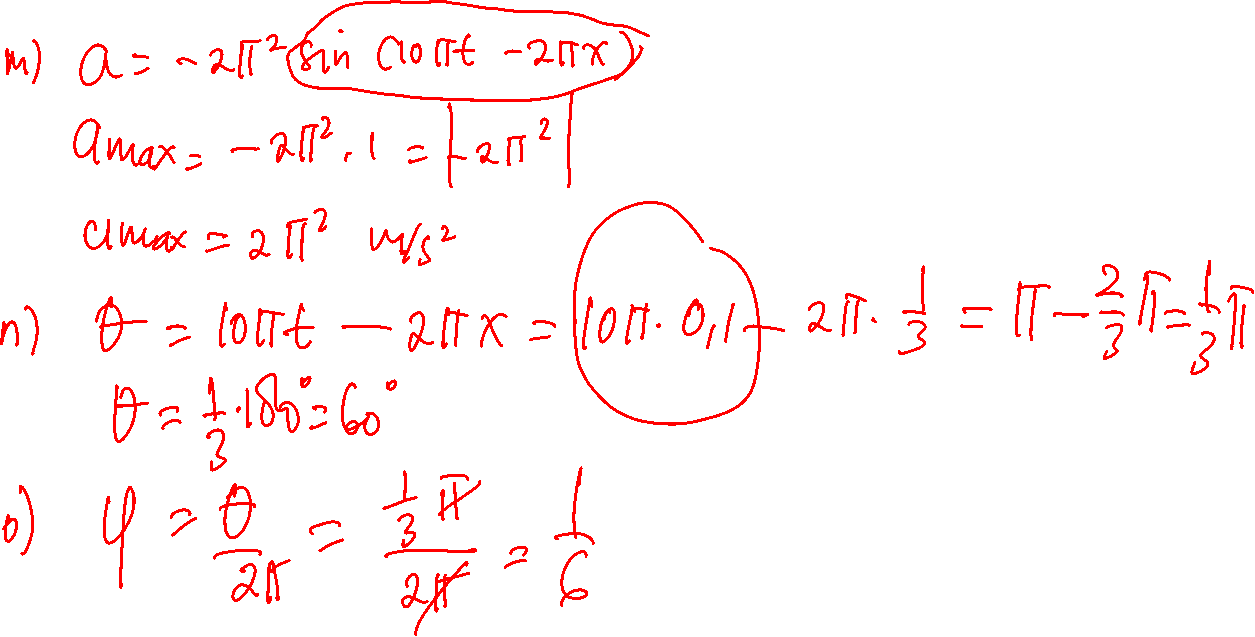 m) a = -2π² sin (10πt - 2πx)
amax = -2π² . 1 = |-2π²|
amax = 2π² m/s²
n) θ = 10πt - 2πx = 10π. 0,1 - 2π. 1/3 = π - 2/3 π = 1/3 π
θ = 1/3 . 180° = 60°
o) φ = θ/2π = 1/3 π / 2π = 1/6